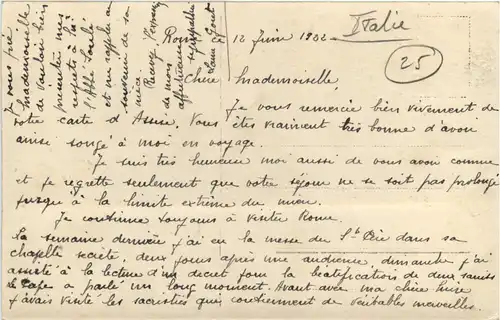 Italie
25
Rome ce 12 Juin 1932
Chère Mademoiselle,
Je vous remercie bien vivement de
votre carte d'Assise. Vous êtes vraiment très bonne d'avoir
ainsi songé à moi en voyage.
Je suis très heureuse moi aussi de vous avoir connue
et je regrette seulement que votre séjour ne se soit pas prolongé
jusqu'à la limite extrême du mien.
Je continue toujours à visiter Rome.
La semaine dernière j'ai eu la messe du St Père dans sa
chapelle secrète, deux jours après une audience, dimanche j'ai
assisté à la lecture d'un décret pour la béatification de deux
le Pape a parlé un long moment. Avant avec ma chère
j'avais visité les sacristies qui contiennent de véritables merveilles.
Je vous prie
Mademoiselle
de vouloir bien
présenter mes
respects à
l'Abbé
et me rappeler au
souvenir de sa
nièce
Recevez
de mes
affectueuses